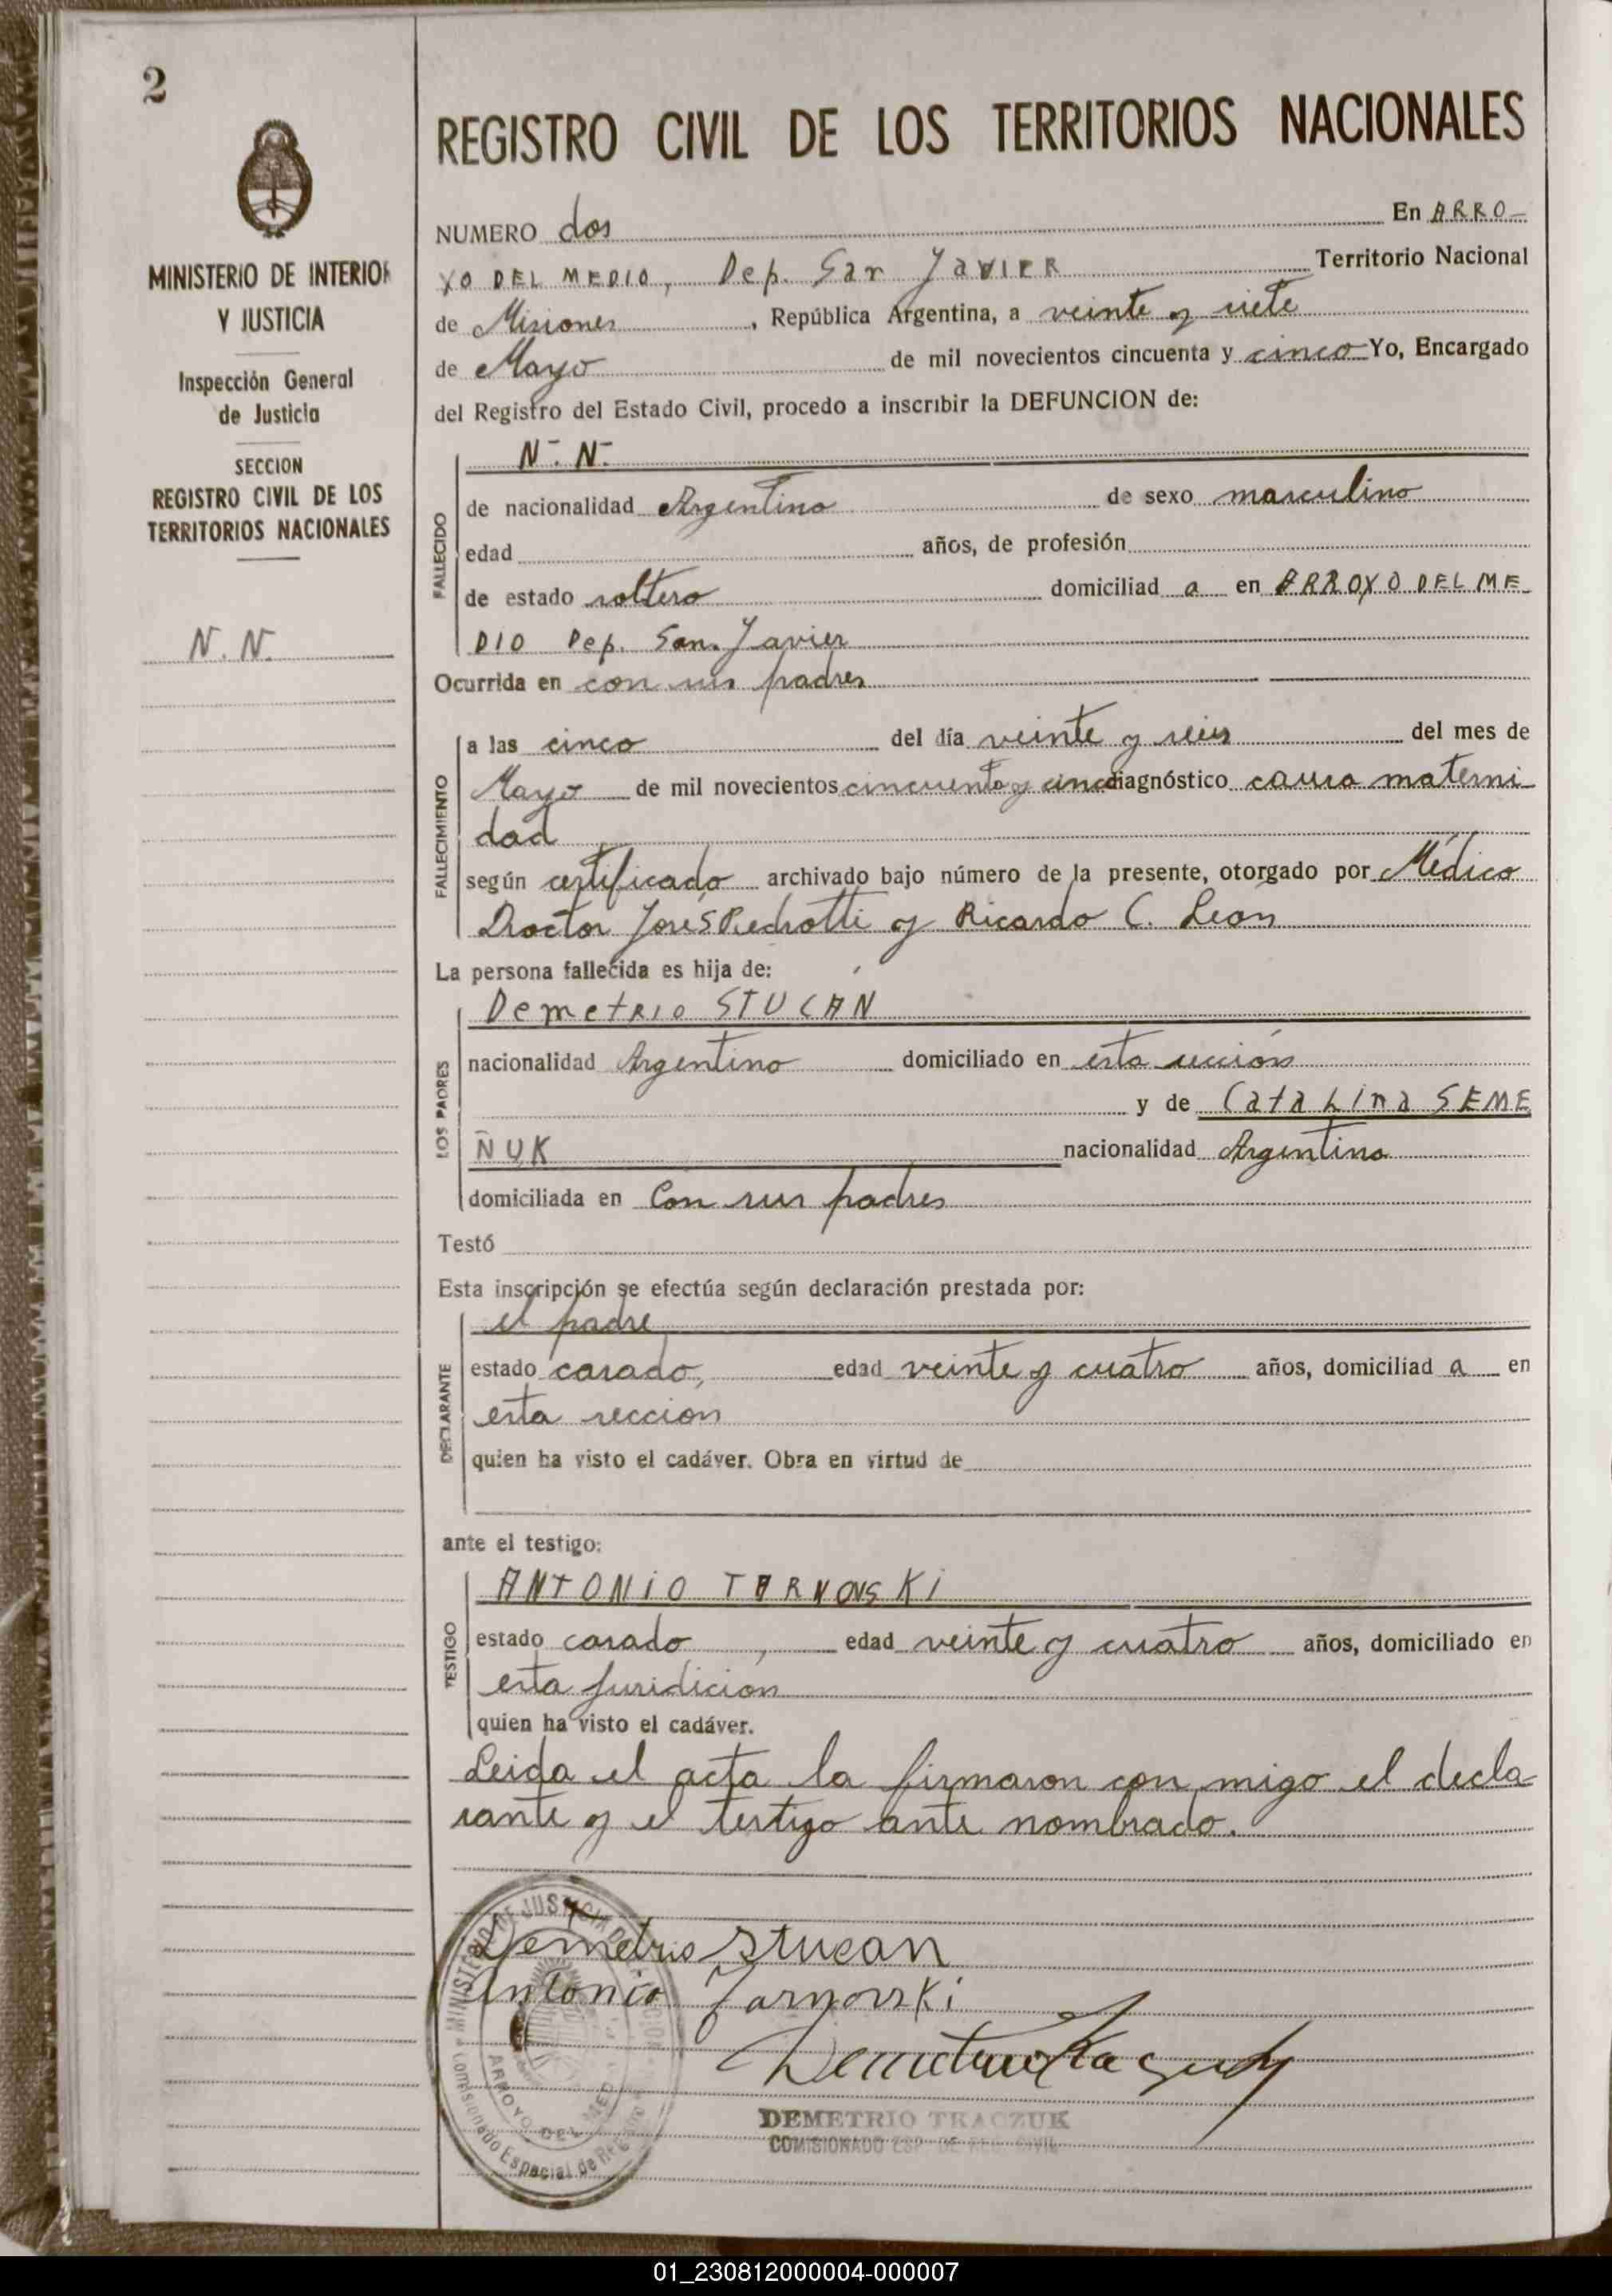 2
MINISTERIO DE INTERIOR
Y JUSTICIA
Inspección General
de Justicia
SECCION
REGISTRO CIVIL DE LOS
TERRITORIOS NACIONALES
N. N.
REGISTRO CIVIL DE LOS TERRITORIOS NACIONALES
NUMERO dos En ARRO-
YO DEL MEDIO, Dep. San JAVIER Territorio Nacional
de Misiones, República Argentina, a veinte y siete
de Mayo de mil novecientos cincuenta y cinco Yo, Encargado
del Registro del Estado Civil, procedo a inscribir la DEFUNCION de:
N. N.
FALLECIDO
de nacionalidad Argentino de sexo masculino
edad años, de profesión
de estado soltero domiciliad a en ARROYO DEL ME
DIO Dep. San Javier
Ocurrida en con sus padres
FALLECIMIENTO
a las cinco del día veinte y seis del mes de
Mayo de mil novecientos cincuenta y cinco diagnóstico causa materni
dad
según certificado archivado bajo número de la presente, otorgado por Médico
Doctor José S Piedrotti y Ricardo C. Leon
La persona fallecida es hija de:
LOS PADRES
Demetrio STUCAN
nacionalidad Argentino domiciliado en esta sección
y de Catalina SEME
ÑUK nacionalidad Argentina
domiciliada en Con sus padres
Testó
Esta inscripción se efectúa según declaración prestada por:
DECLARANTE
el padre
estado casado, edad veinte y cuatro años, domiciliad a en
esta seccion
quien ha visto el cadáver. Obra en virtud de
ante el testigo:
TESTIGO
ANTONIO TARNOVSKI
estado casado, edad veinte y cuatro años, domiciliado en
esta juridicion
quien ha visto el cadáver.
Leida el acta la firmaron con migo el decla
rante y el testigo ante nombrado.
Demetrio Stucan
Antonio Tarnovski
MINISTERIO DE JUSTICIA
ARROYO DEL MEDIO
Comisionado Especial de Registro
DEMETRIO TRACZUK
COMISIONADO ESP. DE REG. CIVIL
01_230812000004-000007